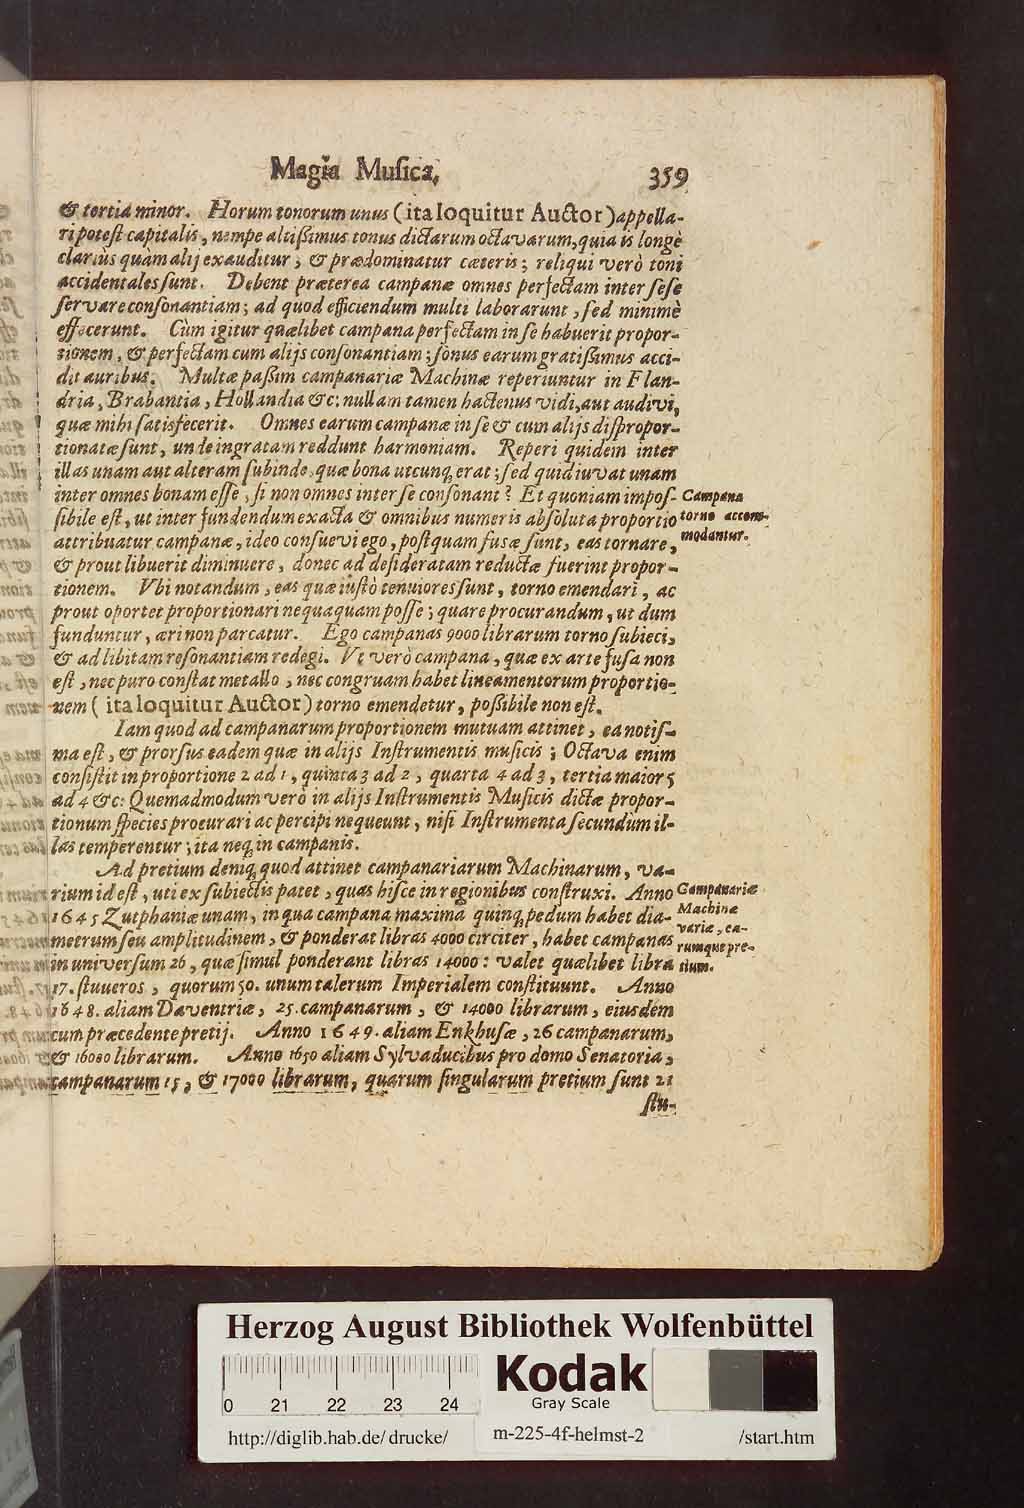 Magia Musica. 359
& tertia minor. Horum tonorum unus (ita loquitur Auctor) appella-
ri potest capitalis, nempe altißimus tonus dictarum octavarum, quia is longè
clariùs quàm alij exauditur, & prædominatur cæteris; reliqui verò toni
accidentales sunt. Debent præterea campanæ omnes perfectam inter sese
servare consonantiam; ad quod efficiendum multi laborarunt, sed minimè
effecerunt. Cùm igitur quælibet campana perfectam in se habuerit propor-
tionem, & perfectam cum alijs consonantiam; sonus earum gratißimus acci-
dit auribus. Multæ paßim campanariæ Machinæ reperiuntur in Flan-
dria, Brabantia, Hollandia &c: nullam tamen hactenus vidi, aut audivi,
quæ mihi satisfecerit. Omnes earum campanæ in se & cum alijs dispropor-
tionatæ sunt, unde ingratam reddunt harmoniam. Reperi quidem inter
illas unam aut alteram subinde, quæ bona utcunq; erat; sed quid iuvat unam
inter omnes bonam esse, si non omnes inter se consonant? Et quoniam impos-
sibile est, ut inter fundendum exacta & omnibus numeris absoluta proportio
attribuatur campanæ, ideo consuevi ego, postquam fusæ sunt, eas tornare,
& prout libuerit diminuere, donec ad desideratam reductæ fuerint propor-
tionem. Vbi notandum, eas quæ iustò tenuiores sunt, torno emendari, ac
prout oportet proportionari nequaquam posse; quare procurandum, ut dum
funduntur, æri non parcatur. Ego campanas 9000 librarum torno subieci,
& ad libitam resonantiam redegi. Vt verò campana, quæ ex arte fusa non
est, nec puro constat metallo, nec congruam habet lineamentorum proportio-
nem (ita loquitur Auctor) torno emendetur, poßibile non est.
Campana
torno accom-
modantur.
Iam quod ad campanarum proportionem mutuam attinet, ea notiß-
ma est, & prorsus eadem quæ in alijs Instrumentis musicis; Octava enim
consistit in proportione 2 ad 1, quinta 3 ad 2, quarta 4 ad 3, tertia maior 5
ad 4 &c: Quemadmodum verò in alijs Instrumentis Musicis dictæ propor-
tionum species procurari ac percipi nequeunt, nisi Instrumenta secundùm il-
las temperentur; ita neq; in campanis.
Ad pretium deniq; quod attinet campanariarum Machinarum, va-
rium id est, uti ex subiectis patet, quas hisce in regionibus construxi. Anno
1645 Zutphaniæ unam, in qua campana maxima quinq; pedum habet dia-
metrum seu amplitudinem, & ponderat libras 4000 circiter, habet campanas
in universum 26, quæ simul ponderant libras 14000: valet quælibet libra
17. stuveros, quorum 50. unum talerum Imperialem constituunt. Anno
1648. aliam Daventriæ, 25. campanarum, & 14000 librarum, eiusdem
cum præcedente pretij. Anno 1649. aliam Enkhusæ, 26 campanarum,
& 16000 librarum. Anno 1650 aliam Sylvaducibus pro domo Senatoria,
campanarum 15, & 17000 librarum, quarum singularum pretium sunt 21
stu-
Campanariæ
Machinæ
variæ, ea-
rumque pre-
tium.
Herzog August Bibliothek Wolfenbüttel
0 21 22 23 24
Kodak
Gray Scale
http://diglib.hab.de/drucke/ m-225-4f-helmst-2 /start.htm